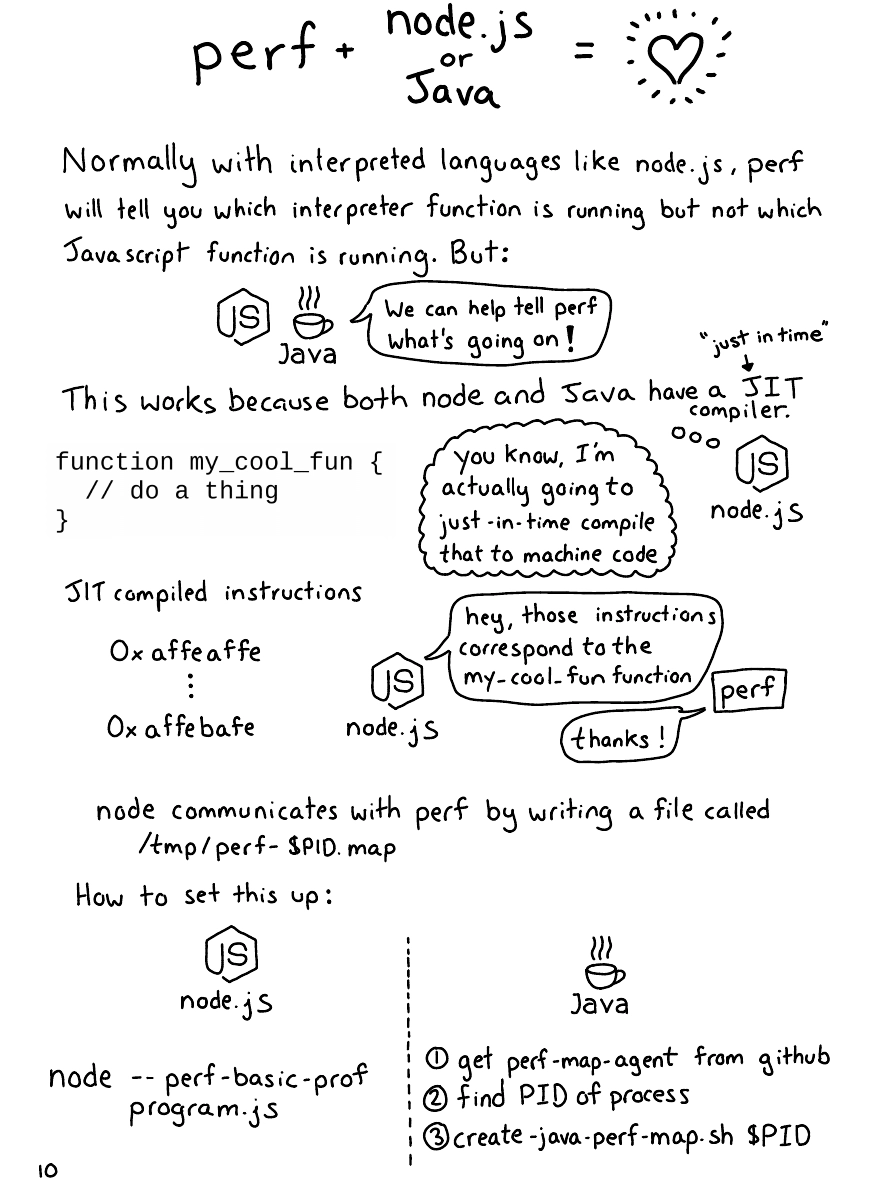 perf + node.js or Java = ♡
Normally with interpreted languages like node.js, perf
will tell you which interpreter function is running but not which
Javascript function is running. But:
JS
Java
We can help tell perf
what's going on!
"just in time"
This works because both node and Java have a JIT
compiler.
function my_cool_fun {
// do a thing
}
you know, I'm
actually going to
just-in-time compile
that to machine code
JS
node.js
JIT compiled instructions
0xaffeaffe
⋮
0xaffebafe
JS
node.js
hey, those instructions
correspond to the
my-cool-fun function
perf
thanks!
node communicates with perf by writing a file called
/tmp/perf-$PID.map
How to set this up:
JS
node.js
node --perf-basic-prof
program.js
Java
① get perf-map-agent from github
② find PID of process
③ create-java-perf-map.sh $PID
10